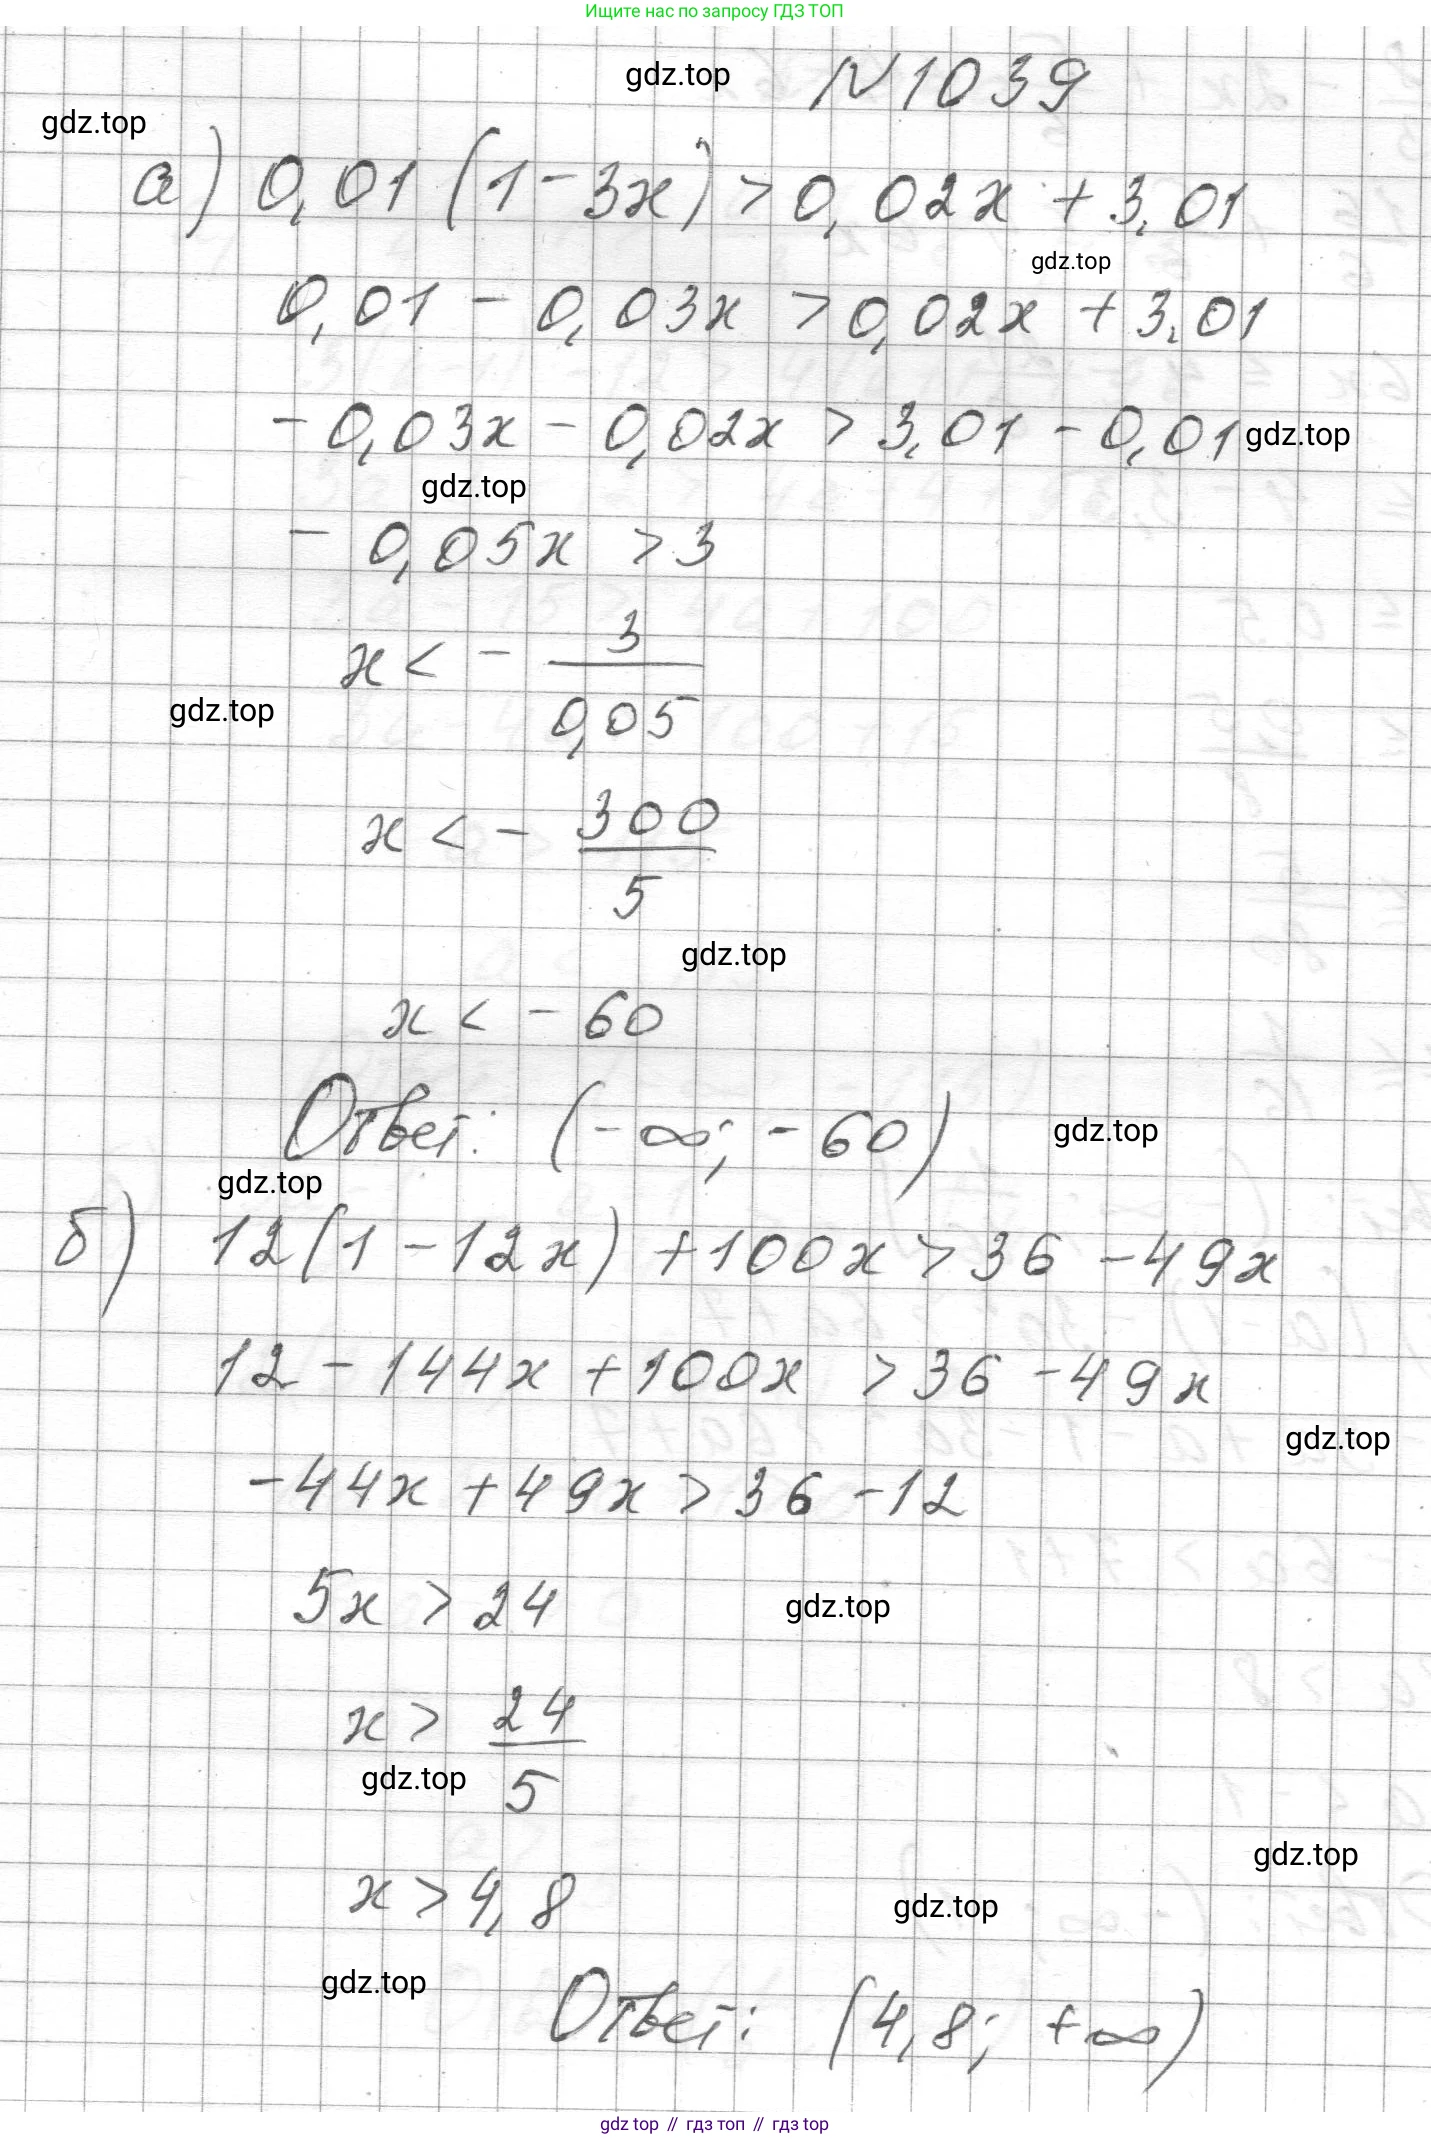 Ищите нас по запросу ГДЗ ТОП
gdz.top
N 1039
gdz.top
а) 0,01 (1 - 3x) > 0,02x + 3,01
gdz.top
0,01 - 0,03x > 0,02x + 3,01
- 0,03x - 0,02x > 3,01 - 0,01
gdz.top
gdz.top
- 0,05x > 3
x < - 3/0,05
gdz.top
x < - 300/5
gdz.top
x < - 60
Ответ: (-∞; -60)
gdz.top
gdz.top
б) 12(1 - 12x) + 100x > 36 - 49x
12 - 144x + 100x > 36 - 49x
gdz.top
-44x + 49x > 36 - 12
5x > 24
gdz.top
x > 24/5
gdz.top
gdz.top
x > 4,8
gdz.top
gdz.top
Ответ: (4,8; +∞)
gdz top // гдз топ // гдз top